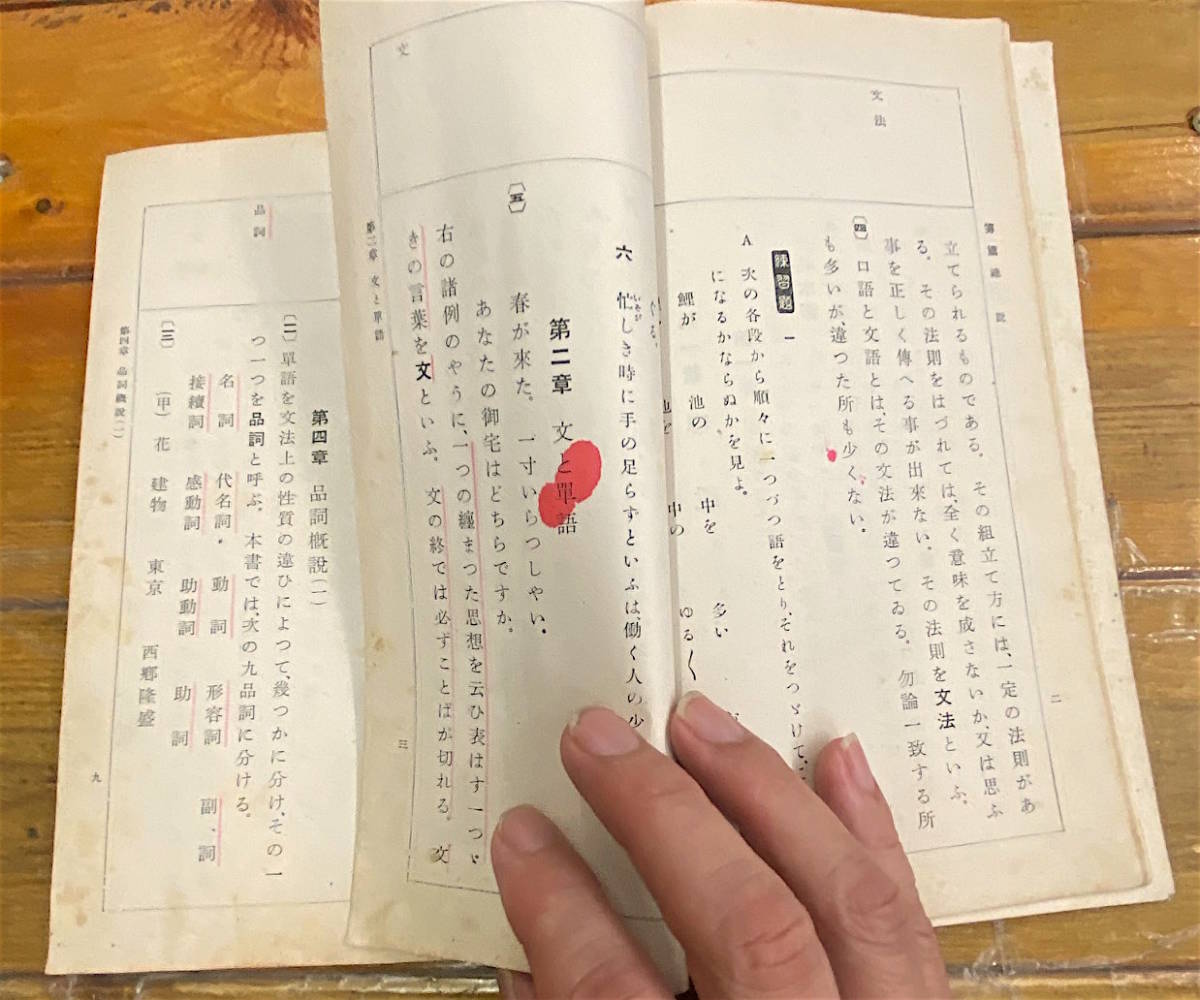 第一篇 總說
二
文法
立てられるものである。その組立て方には、一定の法則があ
る。その法則をはづれては、全く意味を成さないか又は思ふ
事を正しく傳へる事が出來ない。その法則を文法といふ。
〔四〕 口語と文語とは、その文法が違つてゐる。勿論一致する所
も多いが、違つた所も少くない。
練習題 一
A 次の各段から順々に一つづつ語をとり、それをつゞけて、
になるかならぬかを見よ。
鯉が 池の 中を 多い
池を 中の ゆる〱
ぐる。
六 忙しき時に手の足らずといふは、働く人の少
いそが
第二章 文と單語
〔五〕 春が來た。 一寸いらつしやい。
あなたの御宅はどちらですか。
右の諸例のやうに、一つの纏まつた思想を云ひ表はす一つゞ
きの言葉を文といふ。文の終では必ずことばが切れる。文
文
第二章 文と單語
三
第四章 品詞概說(一)
〔一〕 單語を文法上の性質の違ひによつて、幾つかに分け、その一
つ一つを品詞と呼ぶ。本書では、次の九品詞に分ける。
品詞
名詞 代名詞 動詞 形容詞 副詞
接續詞 感動詞 助動詞 助詞
〔二〕 (甲) 花 建物 東京 西鄕隆盛
第四章 品詞概說(一)
九